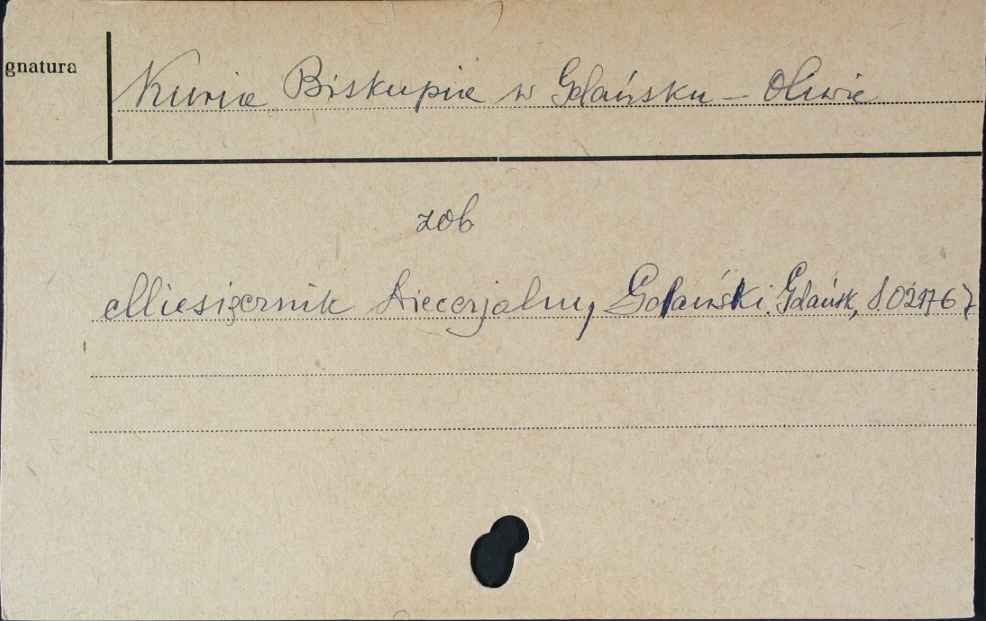 gnatura
Kuria Biskupia w Gdańsku - Oliwie
zob
Miesięcznik Diecezjalny Gdański. Gdańsk, S.02176?